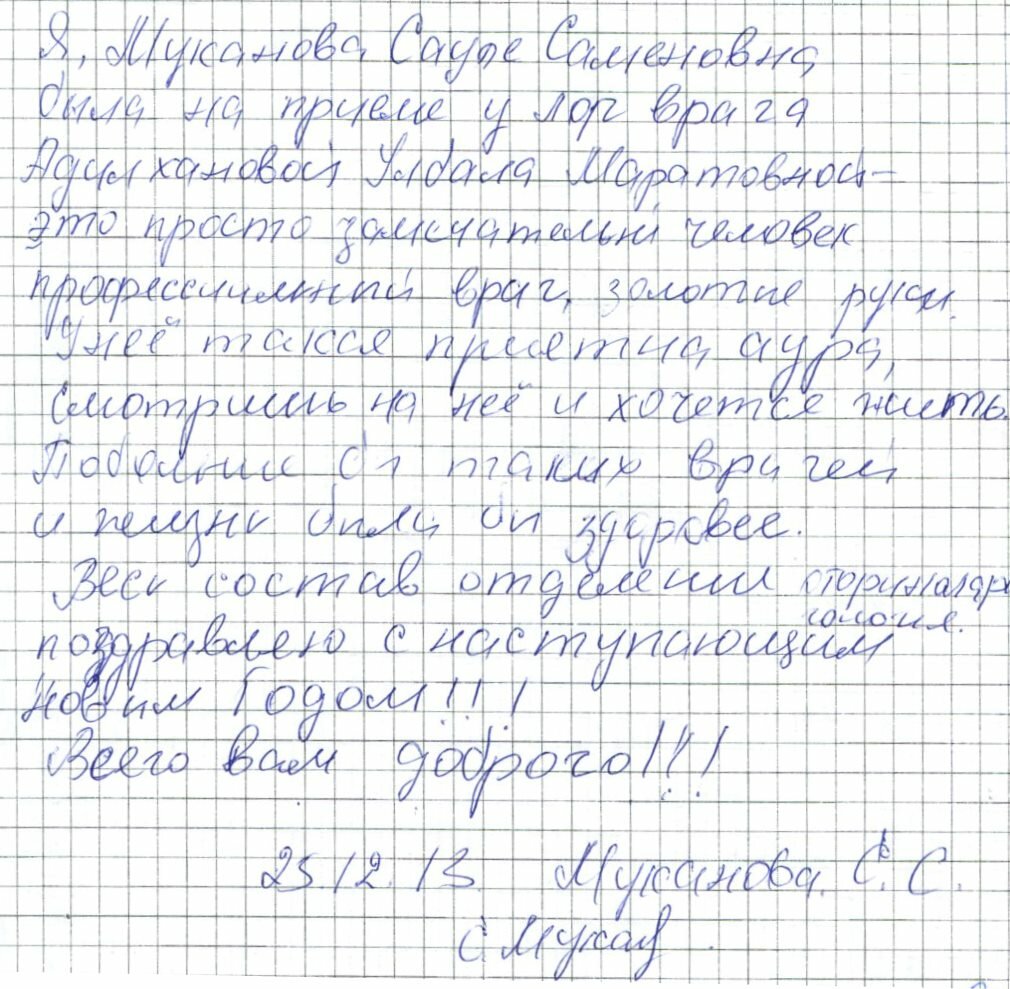 Я, Муканова Сауле Саменовна
была на приеме у лор врача
Адилхановой Улбала Маратовной –
это просто замечательный человек
профессиильный врач, золотые руки.
У неё такая приятна аура,
смотришь на неё и хочется жить.
Побольше бы таких врачей
и жизнь была бы здоровее.
Весь состав отделении оториналар
гология.
поздравляю с наступающим
Новым Годом!!!
Всего вам доброго!!!
25.12.13. Муканова С. С.
С Мукаф